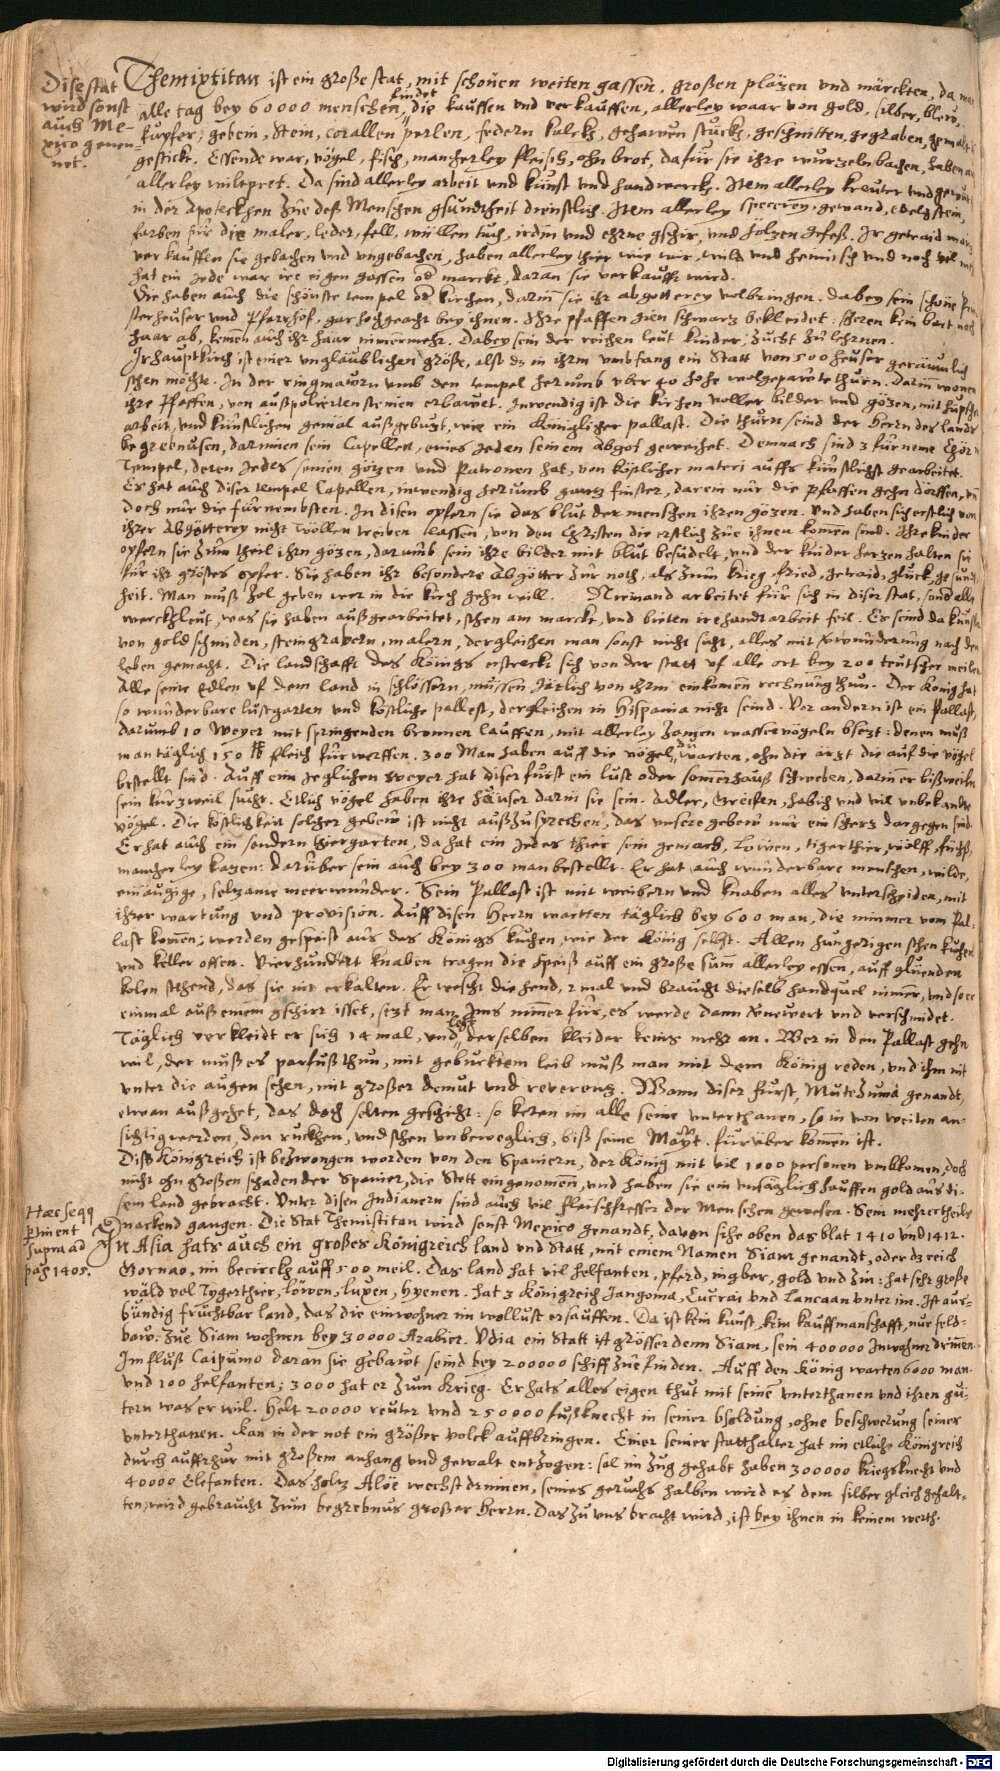 Dise stat
wird sonst
auch Me-
xico genen-
net.
Themixtitan ist ein große stat, mit schönen weiten gassen, großen pläzen und märckten, da man
alle tag bey 60000 menschen findet, die kauffen und verkauffen, allerley waar von gold, silber, bleÿ,
kupfer, gebein, stein, corallen, perlen, federn kulck, gehawen stuck, geschnitten, gegraben, gemalt,
gestickt. Essende war, vögel, fisch, mancherley fleisch, ohn brot, dafür sie ihre wurzeln bachen, haben auch
allerley wiltpret. Da sind allerley arbeit und künst und handwerck. Item allerley kreuter und gewürz
in der Apotecken zue deß Menschen gsundtheit dienstlich. Item allerley specerey, gewand, edelgstein,
farben für die maler, leder, fell, wullen tuch, irdin und ehrne gschir, und hölzen gefeß. Ir getraid maiz
verkauffen sie gebachen und ungebachen, haben allerley thier wie wir, wild und heimisch und noch vil mehr
hat ein jede war ire eigen gassen od marckt, daran sie verkaufft wird.
Sie haben auch die schönste tempel od kirchen, darin sie ihr abgötterey volbringen. Dabey sein schöne
sterheuser und Pfarrhof, gar hochgeacht bey ihnen. Ihre pfaffen gien schwarz bekleidet: scheren kein bart noch
haar ab, kemen auch ihr haar nimermehr. Dabey sein der reichen leut kinder, zucht zu lehrnen.
Ir hauptkirch, ist einer unglaublichen größe, alß dz in ihrm umbfang ein Statt von 500 heuser geräumlich
stehen möchte. In der ringmawrn umb den tempel herumb uber 40 hohe wolgepawte thürn. Darin wonen
ihre Pfaffen, von außpolierten steinen erbawet. Inwendig ist die kirchen voller bilder und gözen, mit hupscher
arbeit, und künstlichen gemäl außgebuzt, wie ein Königlicher pallast. Die thürn seind der herrn des lands
begrebnusen, darinnen sein Capellen, eines jeden seinem abgot geweihet. Demnach sind 3 fürneme Chör in
Tempel, deren jedes seinen gözen und Patronen hat, von köstlicher materi auffs künstlichst gearbeitet.
Es hat auch diser tempel Capellen, inwendig herumb ganz finster, darein nur die pfaffen gehn dörffen, und
doch nur die fürnembsten. In disen opfern sie das blut der menschen ihren gözen. Und haben sich erstlich von
ihrer Abgötterey nicht wöllen treiben lassen, von den Christen die erstlich zue ihnen komen sind. Ihre kinder
opfern sie zum theil ihrn gözen, darumb sein ihre bilder mit blut besudelt, und der kinder herzen halten sie
für ihr gröstes opfer. Sie haben ihr besondere Abgötter zur noth, als zum krieg, fried, getraid, glück, gesund-
heit. Man muß zol geben wer in die kirch gehn will. Niemand arbeitet für sich in diser stat, sond alle
werckleut, was sie haben außgearbeitet, stehn am marckt, und bieten ire handtarbeit feil. Es seind da künstler
von goldschmiden, steingrabern, malern, dergleichen man sonst nicht sicht, alles mit verwunderung nach dem
leben gemacht. Die landschafft des Königs erstreckt sich von der statt uf alle ort bey 200 teutscher meilen
Alle seine Edlen uf dem land in schlössern, müssen järlich von ihrm einkomen rechnung thun. Der König hat
so wunderbare lustgarten und köstliche pallest, dergleichen in Hispania nicht seind. Vor andern ist ein Pallast,
darumb 10 Weyer mit springenden brunnen lauffen, mit allerley zamen wasservögeln bsezt: denen muß
man täglich 150 ℔ fleisch fürwerffen. 300 Man haben auff die vögel zu warten, ohn die arzt die auf die vögel
bestellt sind. Auff eim jeglichen weyer hat diser fürst ein lust oder sommerhauß schweben, darin er bißweilen
sein kürzweil sucht. Etlich vögel haben ihre häuser darin sie sein. Adler, Greiffen, habich und vil unbekandte
vögel. Die köstlichkeit solcher gebew ist nicht außzusprechen, das unsere gebew nur ein scherz dargegen sind.
Er hat auch ein sondern thiergarten, da hat ein jedes thier sein gemach, Löwen, tigerthier, wölff, füchß,
mancherley kazen: darüber sein auch bey 300 man bestellt. Er hat auch wunderbare menschen, wilde,
einäugige, selzame meerwunder. Sein Pallast ist mit weibern und knaben alles unterscheiden, mit
ihrer wartung und provision. Auff disen Herrn wartten täglich bey 600 man, die nimmer vom Pal-
last komen: werden gespeist aus des Königs kuchen, wie der König selbst. Allen hungerigen stehn kuchen
und keller offen. Vierhundert knaben tragen die speiß auff ein große summ allerley essen, auff glüenden
kolen stehend, das sie nit erkalten. Er wescht die hend, 2 mal und braucht dieselb handquel nimmer, und so er
einmal auß einem gschirr isset, sezt man Ims nimmer für, es werde dann vernewert und verschmidet.
Täglich verkleidt er sich 14 mal, und legt derselben kleider keins mehr an. Wer in den Pallast gehn
wil, der muß es parfuß thun, mit gebucktem leib muß man mit dem König reden, und ihm nit
unter die augen sehen, mit großer demut und reverenz. Wann diser fürst, Mutezuma genandt,
etwan außgehet, das doch selten geschicht: so keren im alle seine unterthanen, so in von weiten an-
sichtig werden, den rucken, und stehen unbeweglich, biß seine Mayt. fürüber komen ist.
Diß Königreich ist bezwongen worden von den Spaniern, der König mit vil 1000 personen umbkomen, doch
nicht ohn großen schaden der Spanier, die Stett eingenomen, und haben sie ein unsäglich hauffen gold aus di-
sem land gebracht. Unter disen Indianern sind auch vil fleischfresser der Menschen gewesen. Sein mehrertheils
nackend gangen. Die Stat Themistitan wird sonst Mexico genandt, davon sihe oben das blat 1410 und 1412.
Haec seqq
ptinent
supra ad
pag. 1405.
In Asia hats auch ein großes Königreich land und Statt, mit einem Namen Siam genandt, oder dz reich
Gornao, im becirck auff 500 meil. Das land hat vil helfanten, pferd, ingber, gold und zin: hat sehr große
wäld vol Tygerthier, löwen, lupen, hyenen. Hat 3 Königreich Jangoma, Curai und Lancaan unter im. Ist aus-
bündig fruchtbar land, das die einwohner im wollust ersauffen. Da ist kein kunst, kein kauffmanschafft, nur feld-
baw. Zue Siam wohnen bey 30000 Arabier. Udia ein Statt ist grösser denn Siam, sein 400000 Inwohner drinnen.
Im fluß Caipumo daran sie gebawt seind bey 200000 schiff zue finden. Auff den König warten 6000 man
und 100 helfanten; 3000 hat er zum krieg. Er hats alles eigen thut mit seinen unterthanen und ihren gü-
tern was er wil. Helt 20000 reuter und 250000 fußknecht in seiner bsoldung, ohne beschwerung seiner
unterthanen. Kan in der not ein größer volck auffbringen. Einer seiner statthalter hat im etliche Königreich
durch auffrhur mit großem anhang und gewalt entzogen: sol im zug gehabt haben 300000 kriegsknecht und
40000 Elefanten. Das holz Aloe wechst drinnen, seines geruchs halben wird es dem silber gleich gehalt-
ten, wird gebraucht zum begrebnus großer herrn. Das zu uns bracht wird, ist bey ihnen in keinem werth.
Digitalisierung gefördert durch die Deutsche Forschungsgemeinschaft - DFG